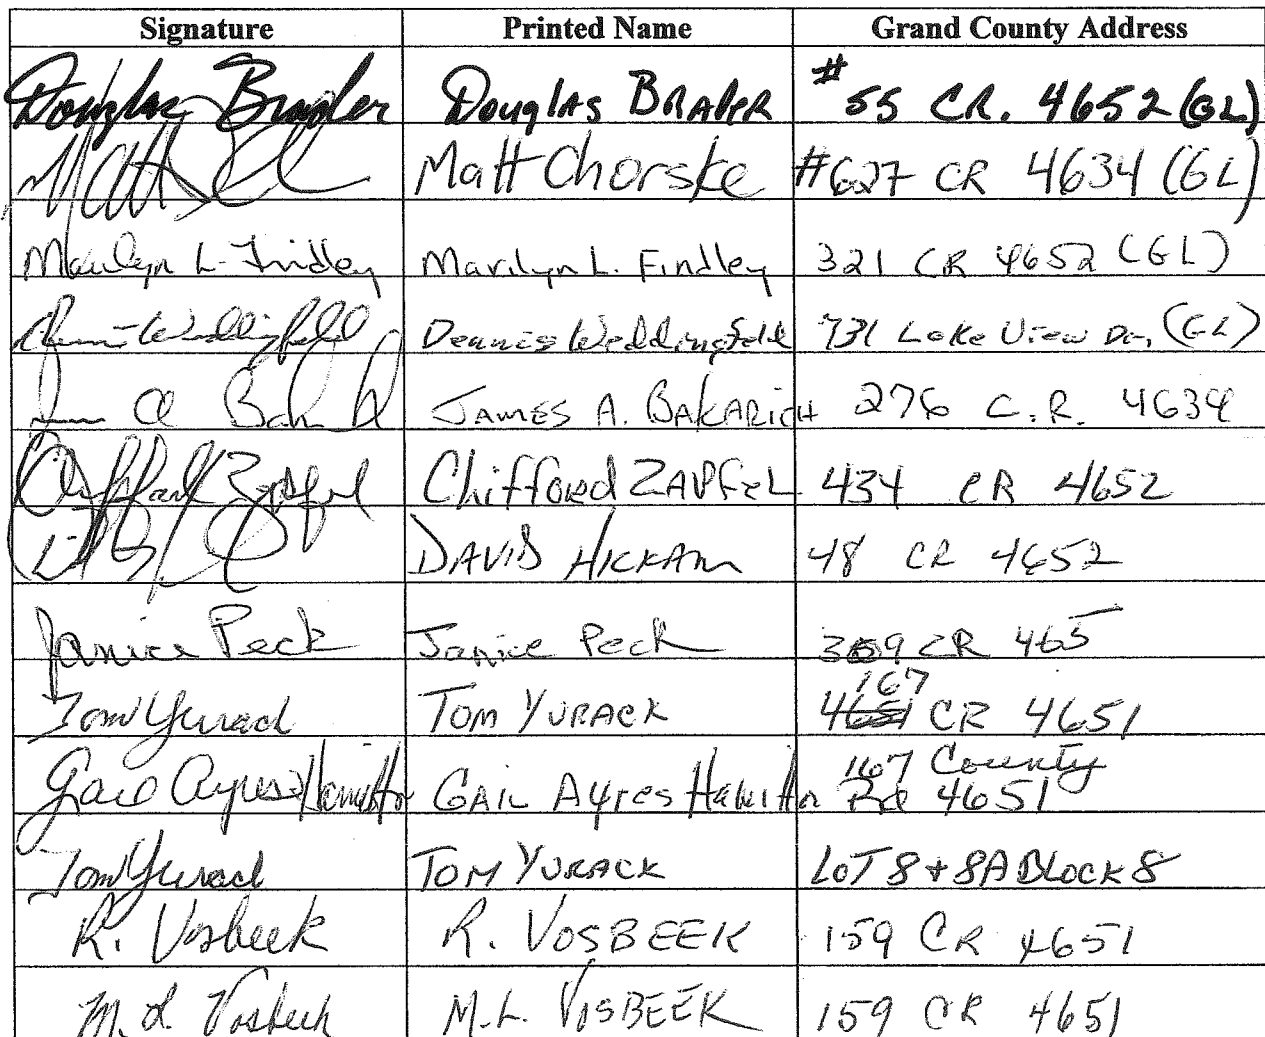 Signature Printed Name Grand County Address
Douglas Brader Douglas BRADER #55 CR. 4652 (GL)
Matt Chorske #627 CR 4634 (GL)
Marilyn L. Findley Marilyn L. Findley 321 CR 4652 (GL)
Dennis Weddingfeld 731 Lake View Dr. (GL)
JAMES A. BAKARICH 276 C.R. 4634
Clifford Zapfel Clifford ZAPFEL 434 CR 4652
DAVID HICKAM 48 CR 4652
Janice Peck Janice Peck 309 CR 465
167
Tom Yurack TOM YURACK CR 4651
167 County
Gail Ayres Hamilton GAIL AYres Hamilton Rd 4651
Tom Yurack TOM YURACK LOT 8 + 8A BLOCK 8
R. Vosbeek R. VOSBEEK 159 CR 4651
M. L. Vosbeek M.L. VOSBEEK 159 CR 4651